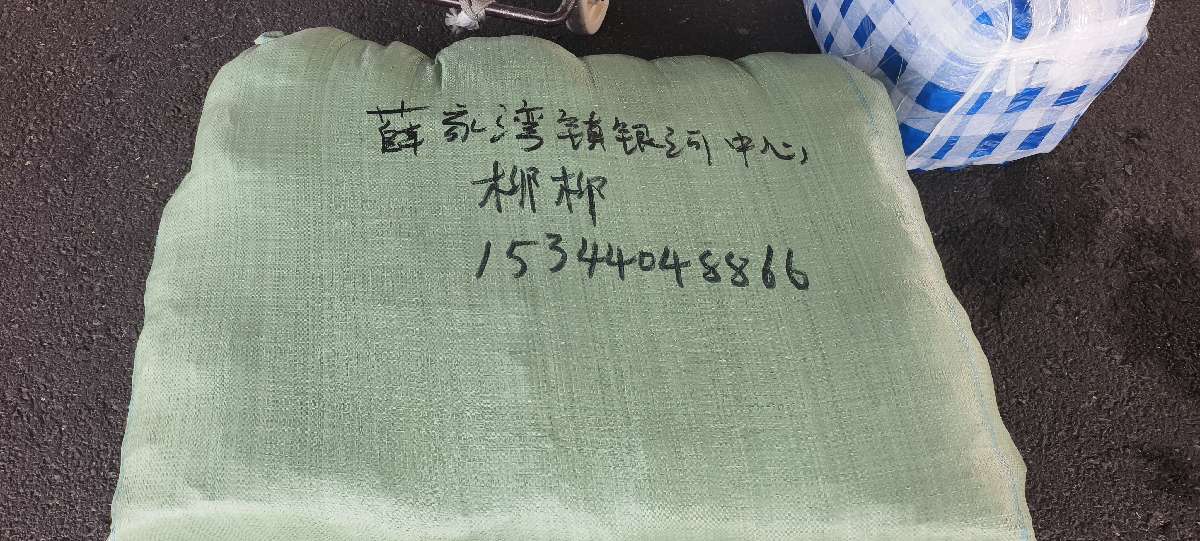 薛家湾镇银河中心
柳柳
15344048866